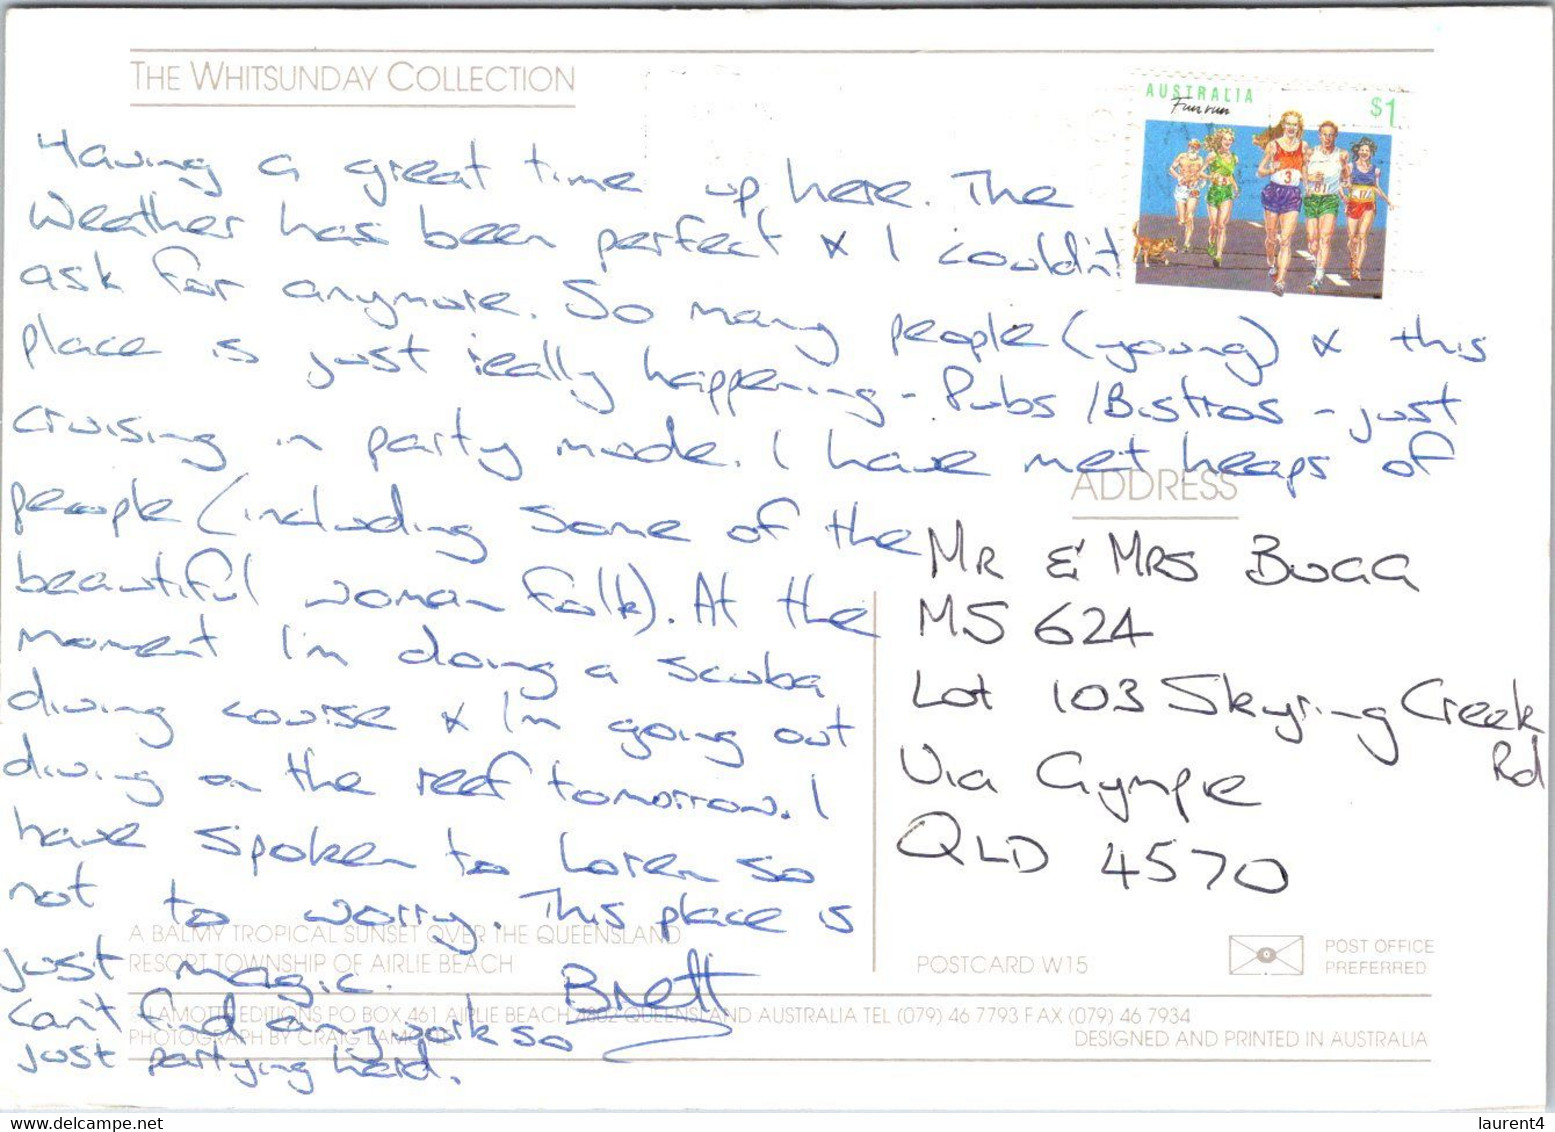 THE WHITSUNDAY COLLECTION
AUSTRALIA
Fun run
$1
3
Having a great time up here. The
Weather has been perfect & I couldn't
ask for anymore. So many people (young) & this
place is just really happening - Pubs / Bistros - just
cruising in party mode. I have met heaps of
people (including some of the
beautiful woman folk). At the
moment I'm doing a scuba
diving course & I'm going out
diving on the reef tomorrow. I
have spoken to Loren so
not to worry. This place is
just magic. Brett
Can't find any work so
just partying hard.
ADDRESS
MR & MRS BUGG
MS 624
Lot 103 Skyring Creek
Rd
Via Gympie
QLD 4570
A BALMY TROPICAL SUNSET OVER THE QUEENSLAND
RESORT TOWNSHIP OF AIRLIE BEACH
POSTCARD W15
POST OFFICE
PREFERRED
LAMOTT EDITIONS PO BOX 461 AIRLIE BEACH 4802 QUEENSLAND AUSTRALIA TEL (079) 46 7793 FAX (079) 46 7934
PHOTOGRAPH BY CRAIG
DESIGNED AND PRINTED IN AUSTRALIA
www.delcampe.net
laurent4